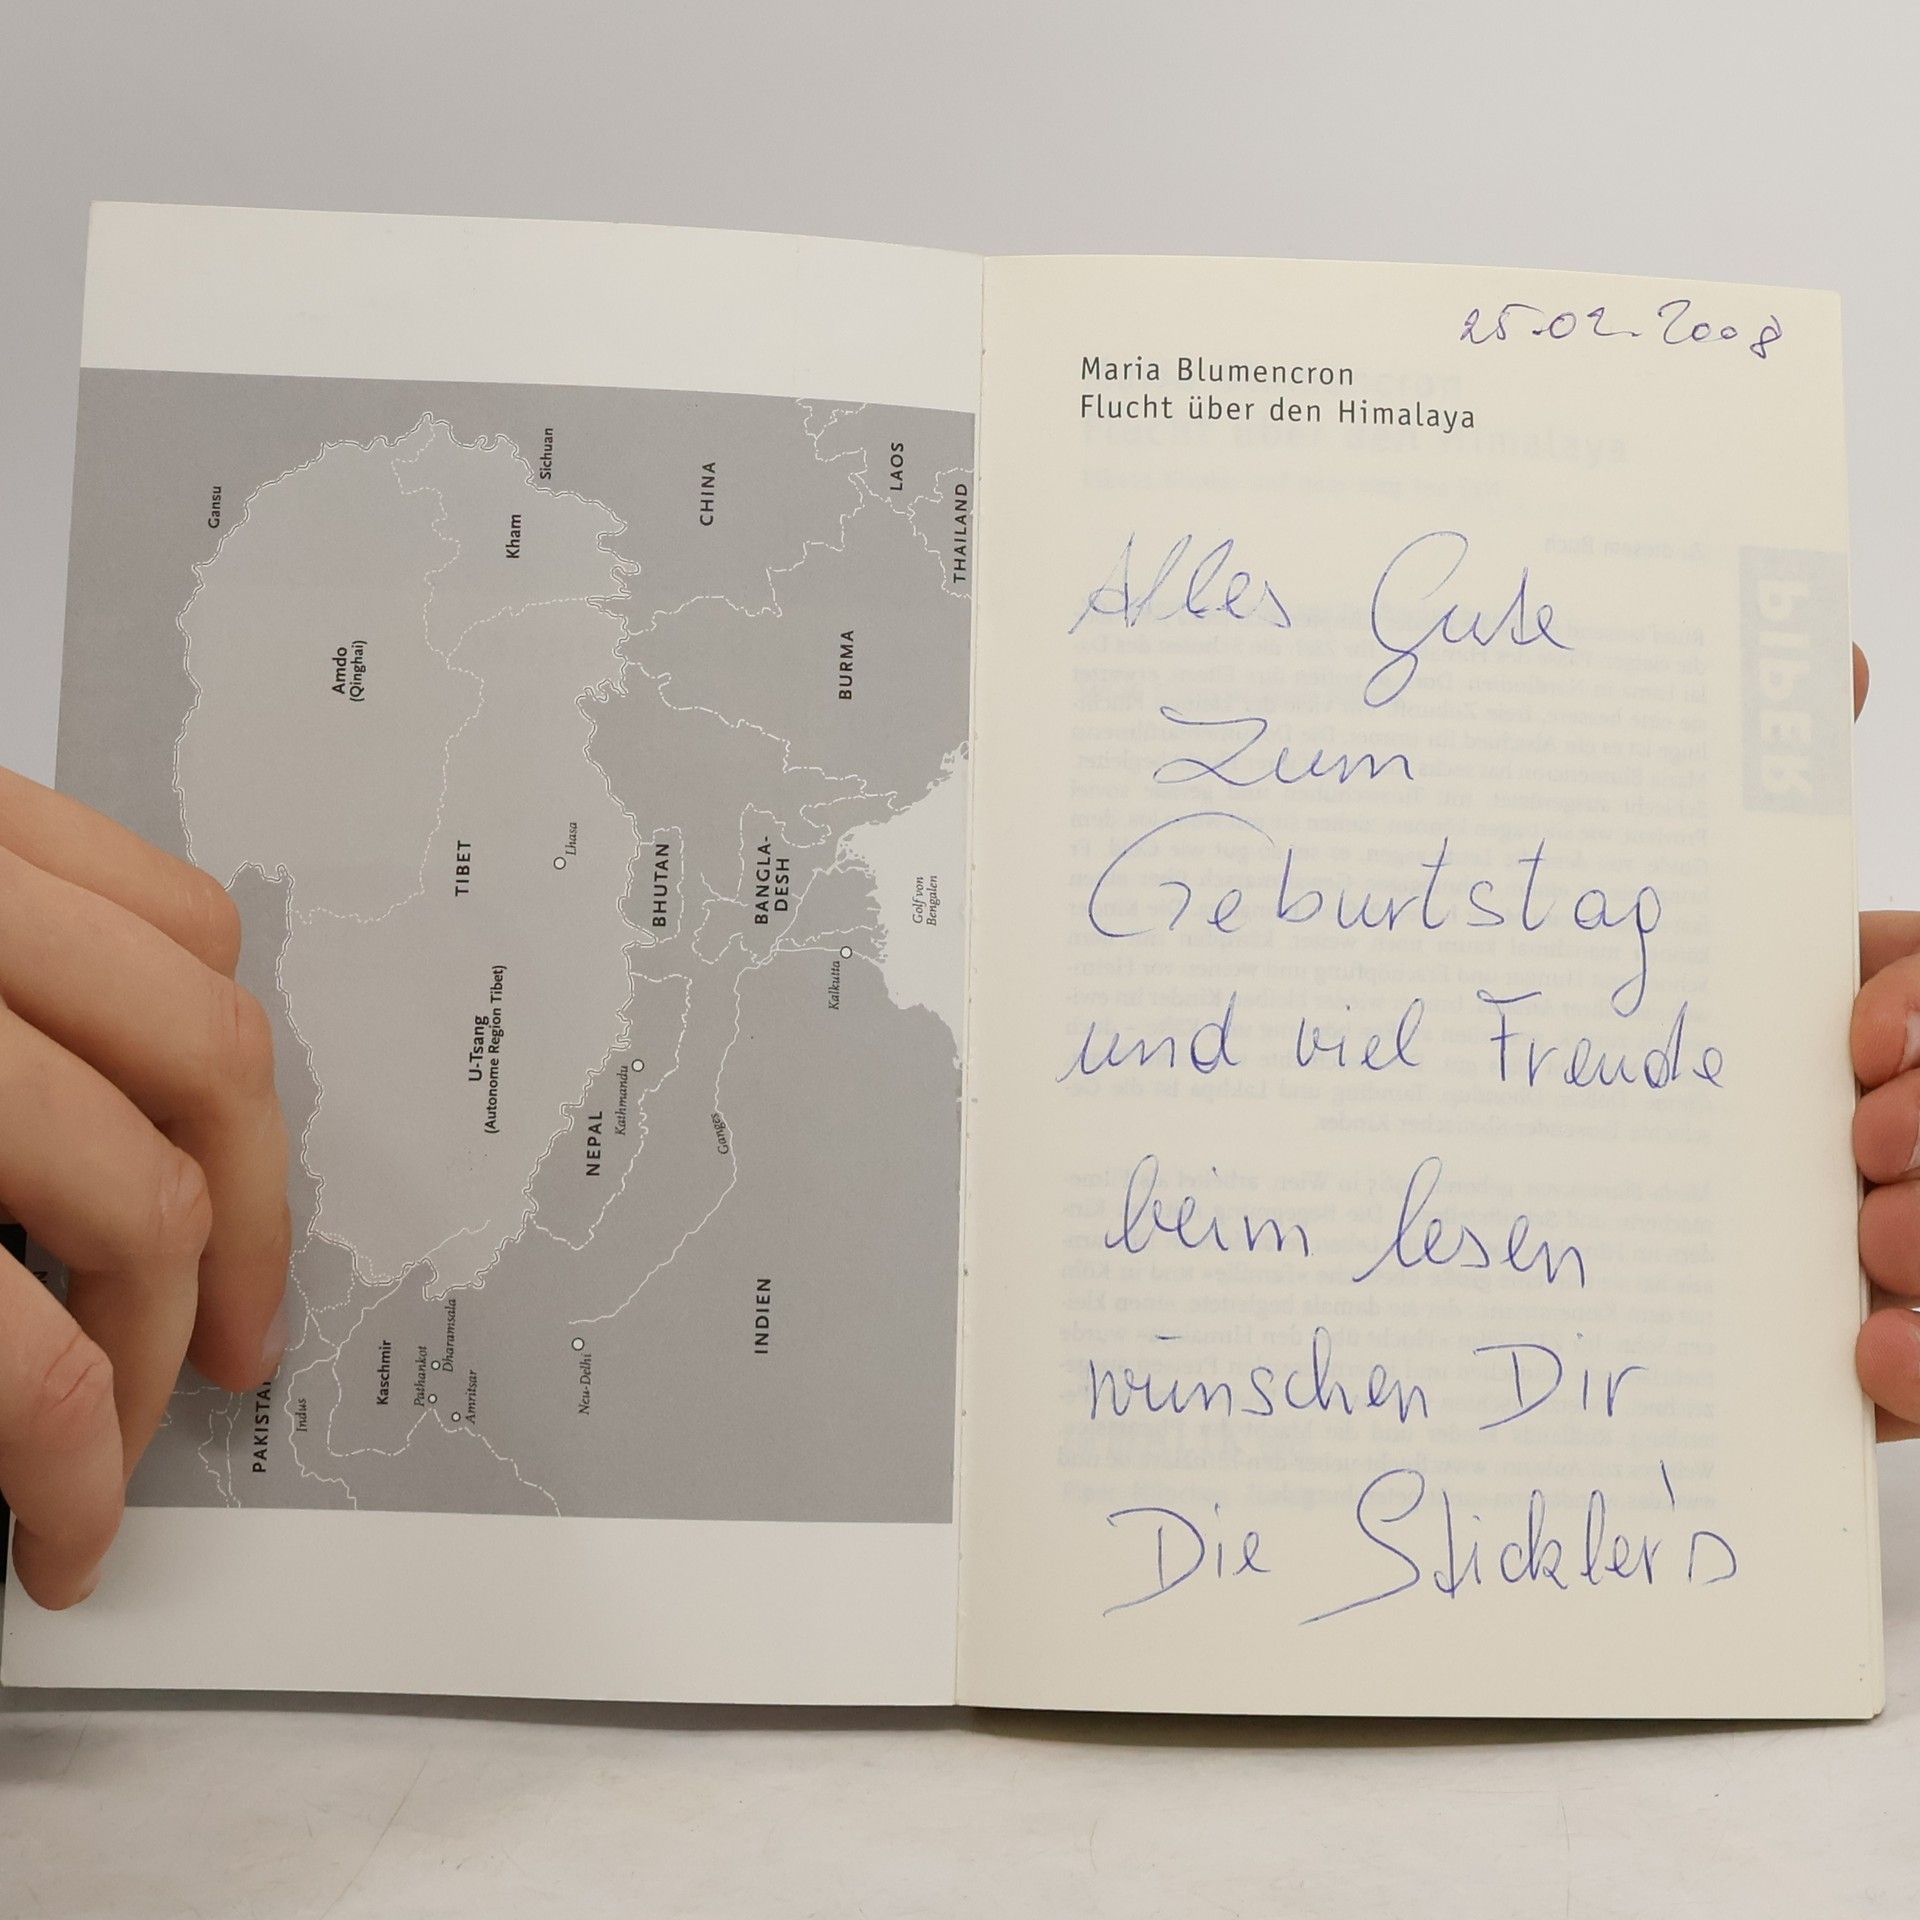 Gansu
Sichuan
Kham
CHINA
LAOS
THAILAND
Amdo
(Qinghai)
BURMA
TIBET
Lhasa
BHUTAN
BANGLA-
DESH
Golf von
Bengalen
Kalkutta
U-Tsang
(Autonome Region Tibet)
Kathmandu
NEPAL
Ganges
INDIEN
Kaschmir
Pathankot
Dharamsala
Amritsar
Neu-Delhi
Indus
PAKISTA
N
25.02.2008
Maria Blumencron
Flucht über den Himalaya
Alles Gute
Zum
Geburtstag
und viel Freude
beim lesen
wünschen Dir
Die Stickler's